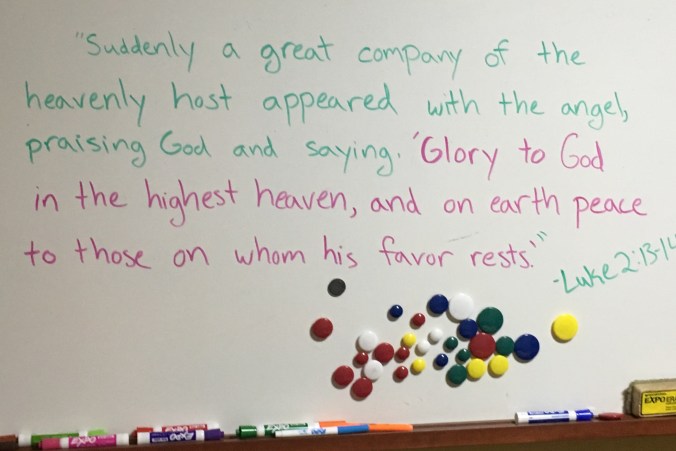 "Suddenly a great company of the
heavenly host appeared with the angel,
praising God and saying. 'Glory to God
in the highest heaven, and on earth peace
to those on whom his favor rests.'"
-Luke 2:13-14
EXPO
EXPO
EXPO
EXPO